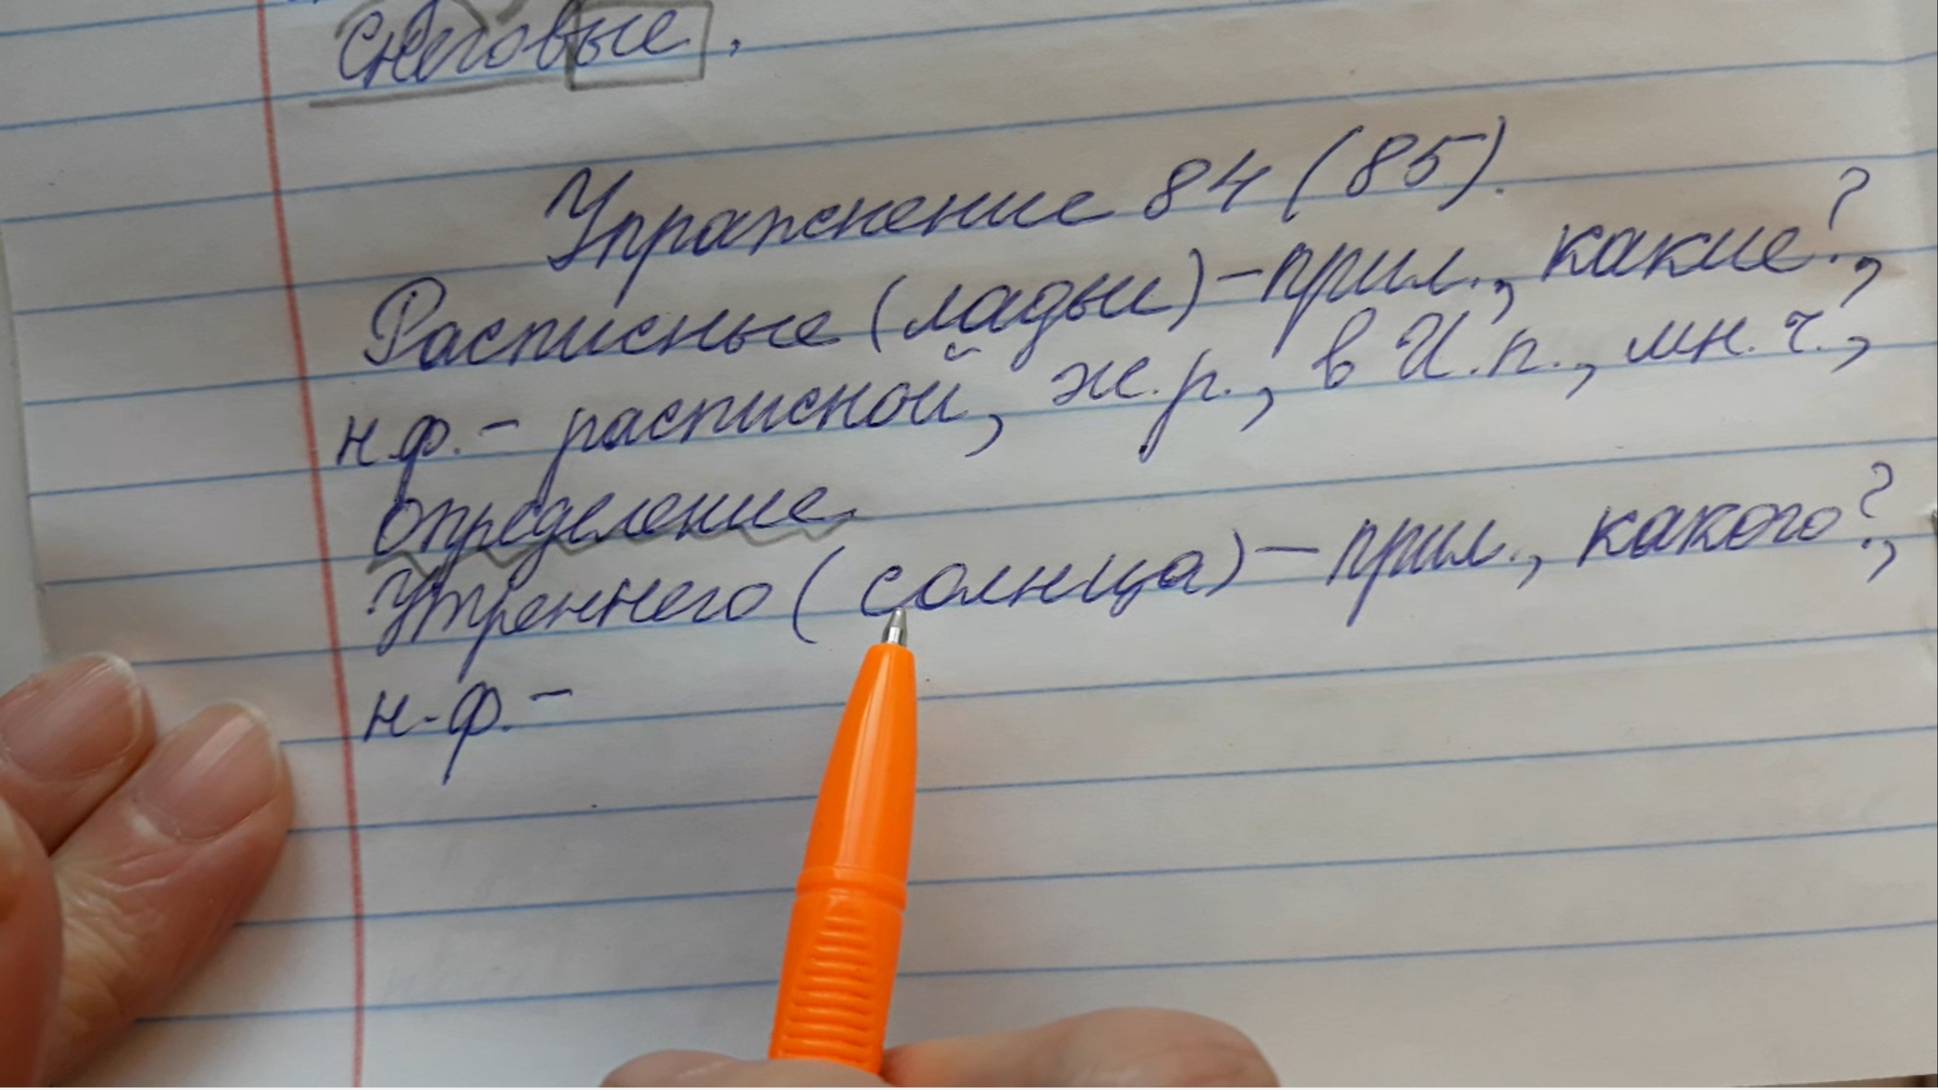 снеговые,
Упражнение 84 (85).
Расписные (ладьи) - прил., какие?,
н.ф. - расписной, ж.р., в И.п., мн.ч.,
определение.
Утреннего (солнца) - прил., какого?,
н.ф. -